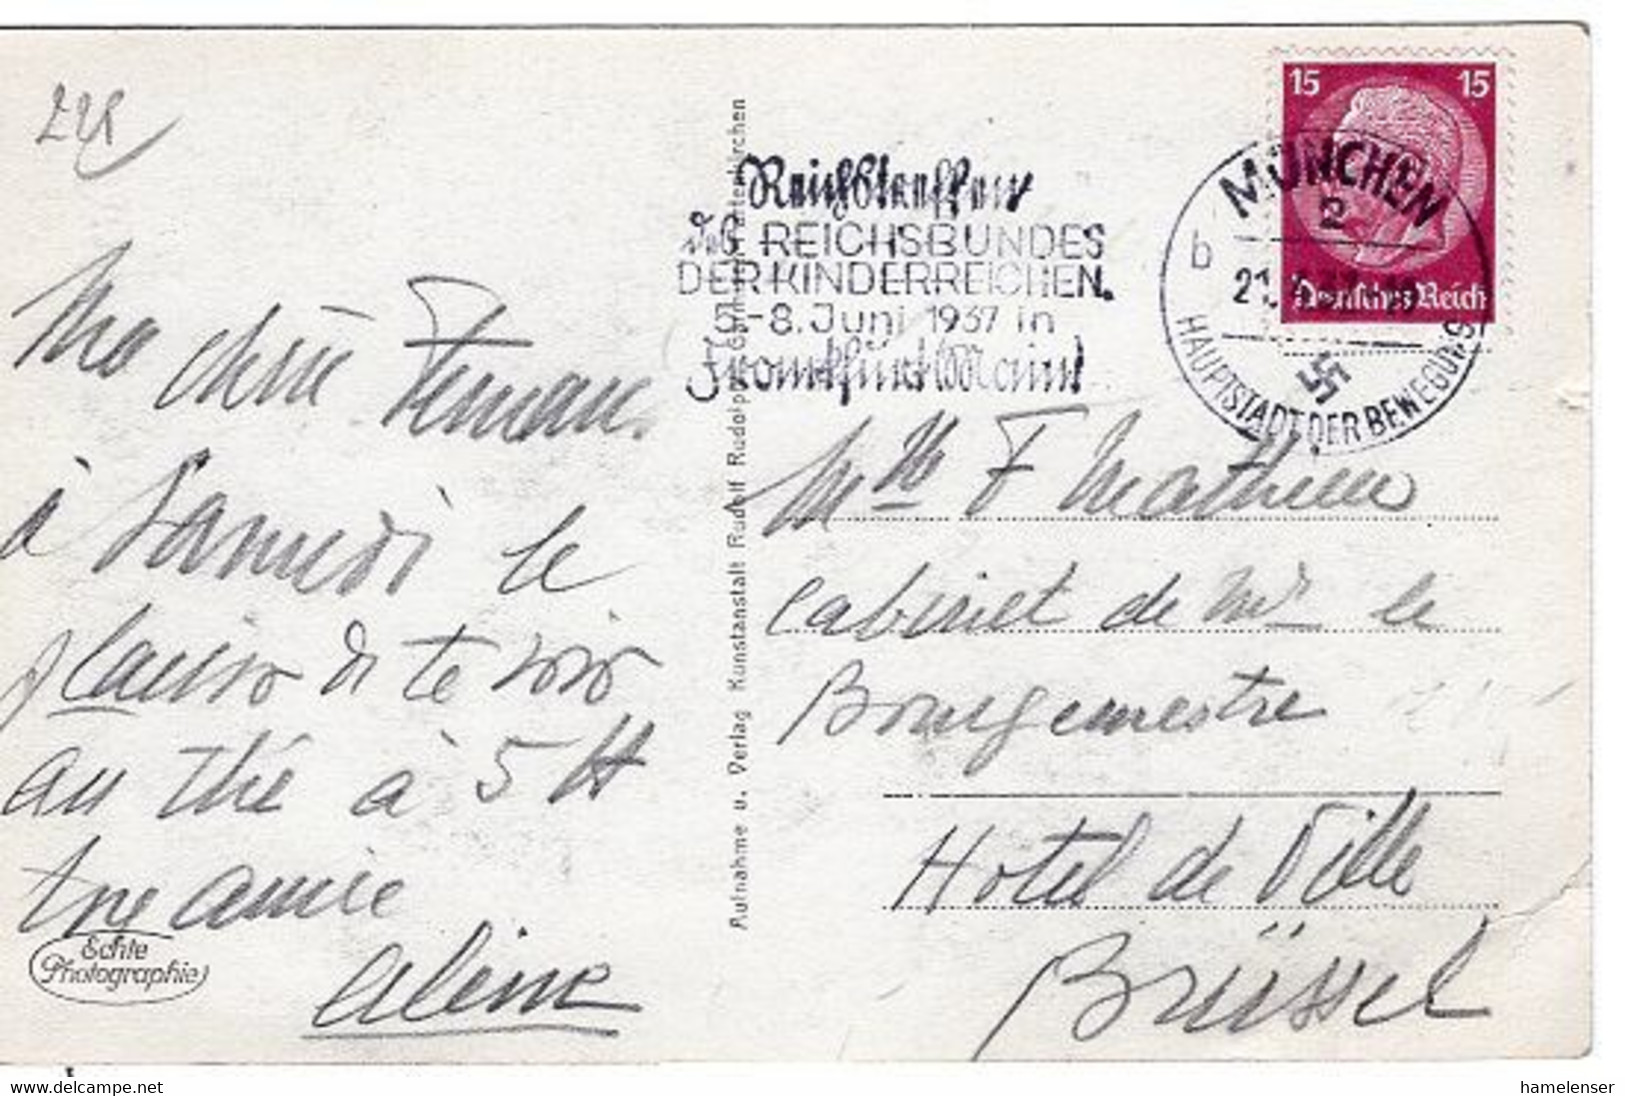 Ma chère Fernande
à Samedi le
plaisir de te voir
au thé à 5 H
tre amie
Aline
Echte
Photographie
Aufnahme u. Verlag Kunstanstalt Rudolf Rudolphi
Reichstreffen
des REICHSBUNDES
DER KINDERREICHEN.
5-8. Juni 1937 in
Frankfurt Main
15 15
Deutsches Reich
MÜNCHEN
2
b
21.
HAUPTSTADT DER BEWEGUNG
Mlle F Mathieu
Cabinet de Mr le
Bourgemestre
Hotel de Ville
Brüssel
www.delcampe.net
hamelenser